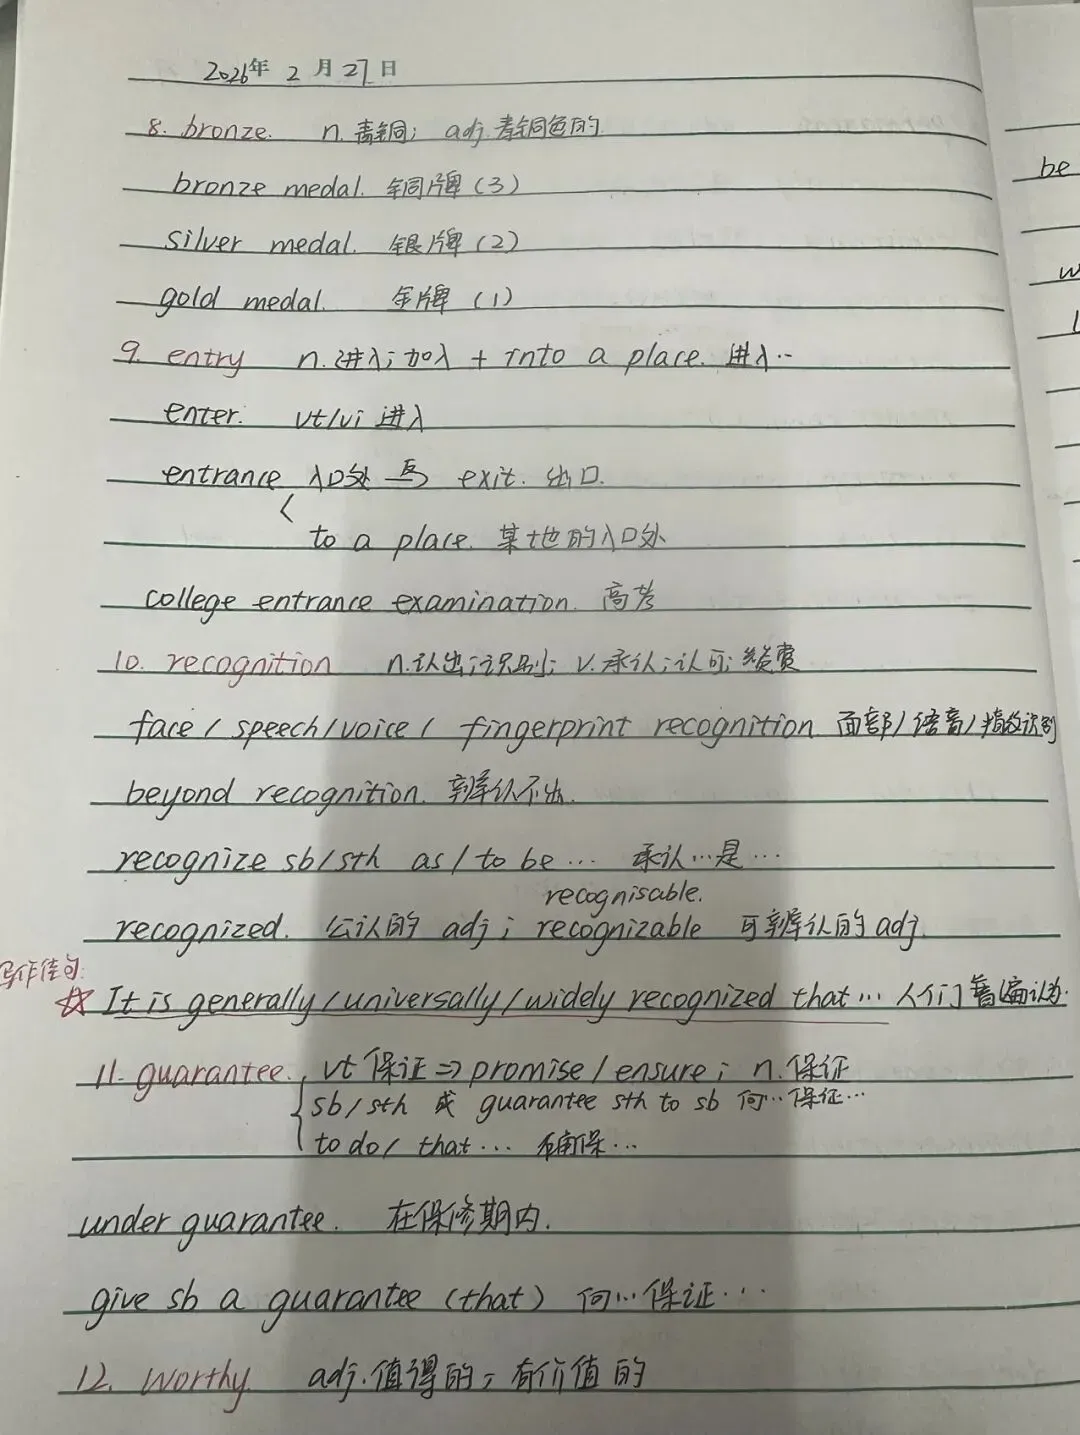 2026年 2 月 27 日
8. bronze. n.青铜; adj.青铜色的.
bronze medal. 铜牌 (3)
silver medal. 银牌 (2)
gold medal. 金牌 (1)
9. entry n.进入;加入 + into a place. 进入…
enter. vt/vi 进入
entrance 入口处 与 exit. 出口.
to a place. 某地的入口处
college entrance examination. 高考
10. recognition n.认出;识别; v.承认;认可;赞赏
face / speech/voice / fingerprint recognition 面部/语音/指纹识别
beyond recognition. 辨认不出.
recognize sb/sth as / to be … 承认…是…
recognisable.
recognized. 公认的 adj ; recognizable 可辨认的 adj.
写作佳句:
☆ It is generally/universally/widely recognized that… 人们普遍认为.
11. guarantee. vt 保证 => promise / ensure ; n.保证
sb/sth 或 guarantee sth to sb 向…保证…
to do / that … 确保…
under guarantee. 在保修期内.
give sb a guarantee (that) 向…保证…
12. worthy. adj.值得的,有价值的
be